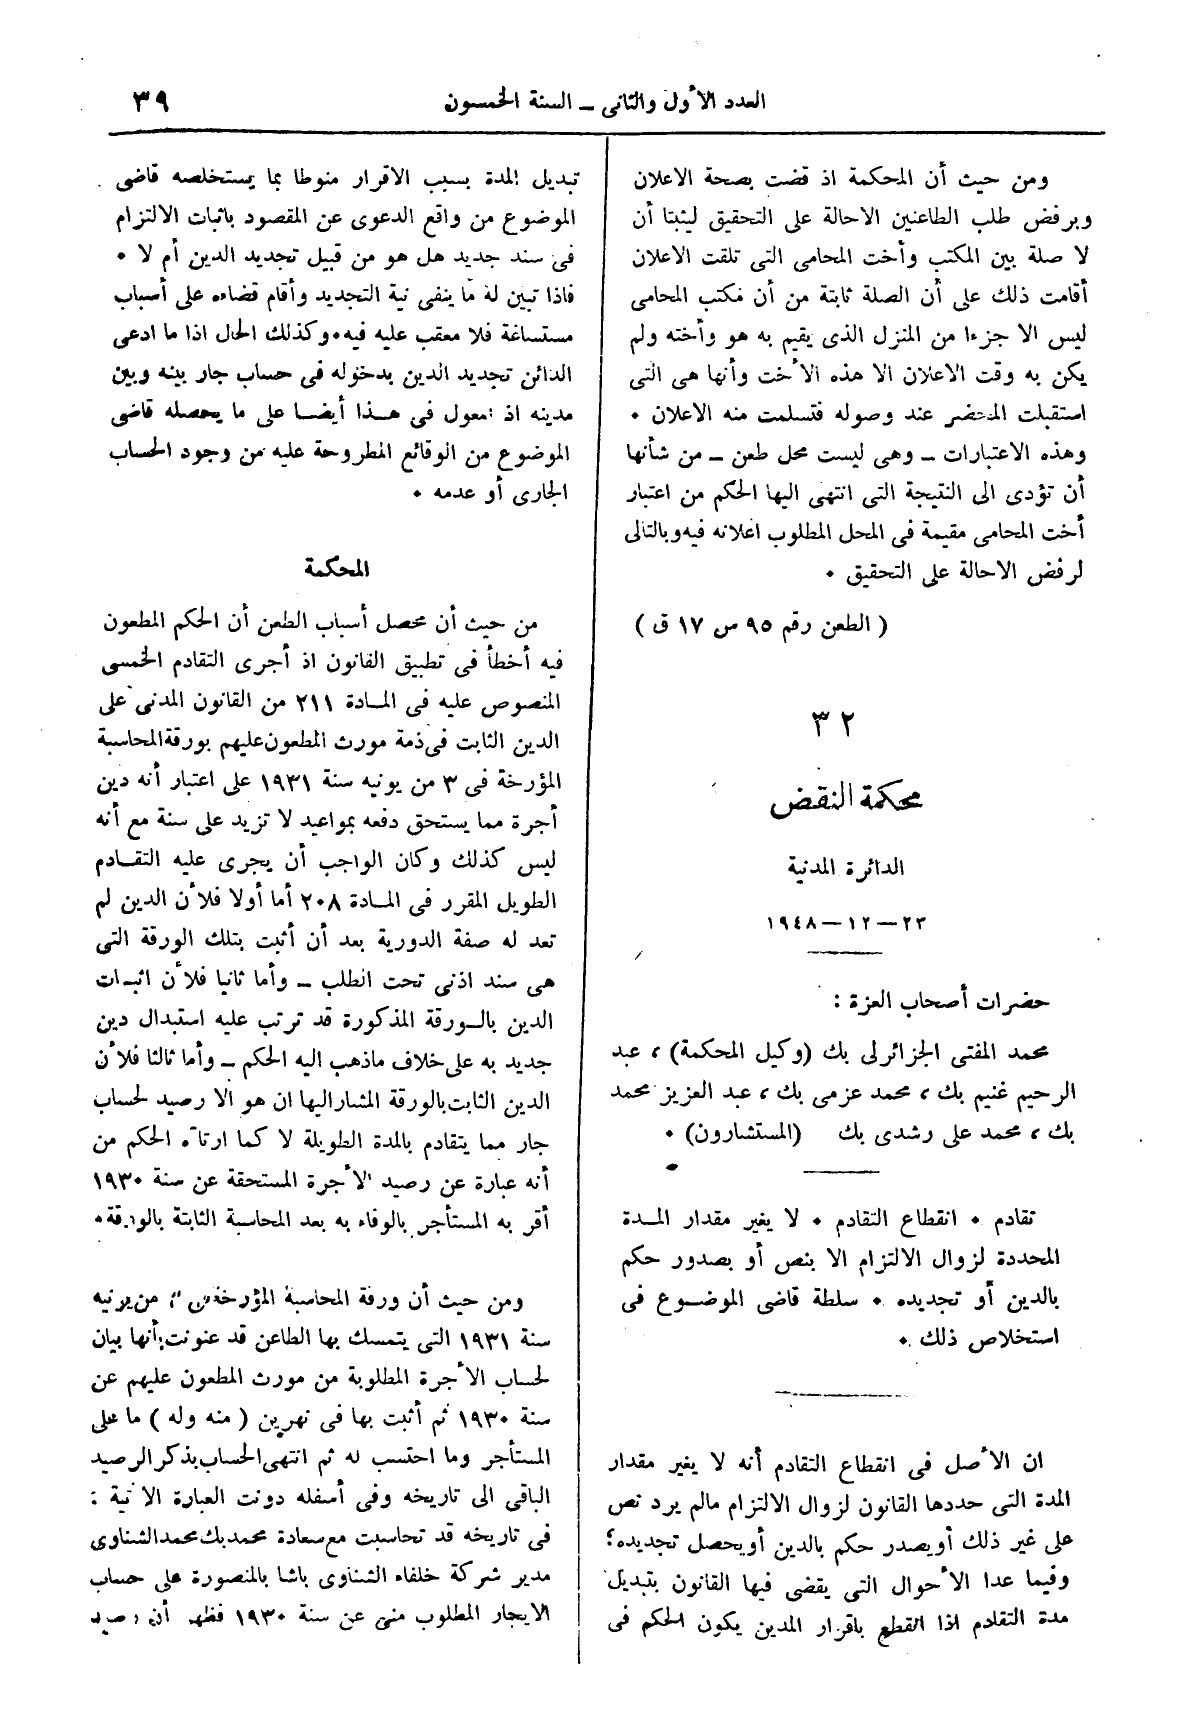 العدد الأول والثانى – السنة الخمسون
٣٩
ومن حيث أن المحكمة اذ قضت بصحة الاعلان
وبرفض طلب الطاعنين الاحالة على التحقيق ليثبتا أن
لا صلة بين المكتب وأخت المحامى التى تلقت الاعلان
أقامت ذلك على أن الصلة ثابتة من أن مكتب المحامى
ليس الا جزءا من المنزل الذى يقيم به هو وأخته ولم
يكن به وقت الاعلان الا هذه الأخت وأنها هى التى
استقبلت المحضر عند وصوله فتسلمت منه الاعلان ٠
وهذه الاعتبارات – وهى ليست محل طعن – من شأنها
أن تؤدى الى النتيجة التى انتهى اليها الحكم من اعتبار
أخت المحامى مقيمة فى المحل المطلوب اعلانه فيه وبالتالى
لرفض الاحالة على التحقيق ٠
( الطعن رقم ٩٥ س ١٧ ق )
٣٢
محكمة النقض
الدائرة المدنية
٢٣ – ١٢ – ١٩٤٨
حضرات أصحاب العزة :
محمد المفتى الجزائرلى بك (وكيل المحكمة) ، عبد
الرحيم غنيم بك ، محمد عزمى بك ، عبد العزيز محمد
بك ، محمد على رشدى بك (المستشارون) ٠
تقادم ٠ انقطاع التقادم ٠ لا يغير مقدار المدة
المحددة لزوال الالتزام الا بنص أو بصدور حكم
بالدين أو تجديده ٠ سلطة قاضى الموضوع فى
استخلاص ذلك ٠
ان الأصل فى انقطاع التقادم أنه لا يغير مقدار
المدة التى حددها القانون لزوال الالتزام مالم يرد نص
على غير ذلك أو يصدر حكم بالدين أو يحصل تجديده ؛
وفيما عدا الأحوال التى يقضى فيها القانون بتبديل
مدة التقادم اذا انقطع باقرار المدين يكون الحكم فى
تبديل المدة بسبب الاقرار منوطا بما يستخلصه قاضى
الموضوع من واقع الدعوى عن المقصود باثبات الالتزام
فى سند جديد هل هو من قبيل تجديد الدين أم لا ٠
فاذا تبين له ما ينفى نية التجديد وأقام قضاءه على أسباب
مستساغة فلا معقب عليه فيه ٠ وكذلك الحال اذا ما ادعى
الدائن تجديد الدين بدخوله فى حساب جار بينه وبين
مدينه اذ المعول فى هذا أيضا على ما يحصله قاضى
الموضوع من الوقائع المطروحة عليه من وجود الحساب
الجارى أو عدمه ٠
المحكمة
من حيث أن محصل أسباب الطعن أن الحكم المطعون
فيه أخطأ فى تطبيق القانون اذ أجرى التقادم الخمسى
المنصوص عليه فى المادة ٢١١ من القانون المدنى على
الدين الثابت فى ذمة مورث المطعون عليهم بورقة المحاسبة
المؤرخة فى ٣ من يونيه سنة ١٩٣١ على اعتبار أنه دين
أجرة مما يستحق دفعه بمواعيد لا تزيد على سنة مع أنه
ليس كذلك وكان الواجب أن يجرى عليه التقادم
الطويل المقرر فى المادة ٢٠٨ أما أولا فلأن الدين لم
تعد له صفة الدورية بعد أن أثبت بتلك الورقة التى
هى سند اذنى تحت الطلب – وأما ثانيا فلأن اثبات
الدين بالورقة المذكورة قد ترتب عليه استبدال دين
جديد به على خلاف ماذهب اليه الحكم – وأما ثالثا فلأن
الدين الثابت بالورقة المشار اليها ان هو الا رصيد لحساب
جار مما يتقادم بالمدة الطويلة لا كما ارتآه الحكم من
أنه عبارة عن رصيد الأجرة المستحقة عن سنة ١٩٣٠
أقر به المستأجر بالوفاء به بعد المحاسبة الثابتة بالورقة ٠
ومن حيث أن ورقة المحاسبة المؤرخة من يونيه
سنة ١٩٣١ التى يتمسك بها الطاعن قد عنونت بأنها بيان
لحساب الأجرة المطلوبة من مورث المطعون عليهم عن
سنة ١٩٣٠ ثم أثبت بها فى نهرين ( منه وله ) ما على
المستأجر وما احتسب له ثم انتهى الحساب بذكر الرصيد
الباقى الى تاريخه وفى أسفله دونت العبارة الآتية :
فى تاريخه قد تحاسبت مع سعادة محمد بك محمد الشناوى
مدير شركة خلفاء الشناوى باشا بالمنصورة على حساب
الايجار المطلوب منى عن سنة ١٩٣٠ فظهر أن رصيد